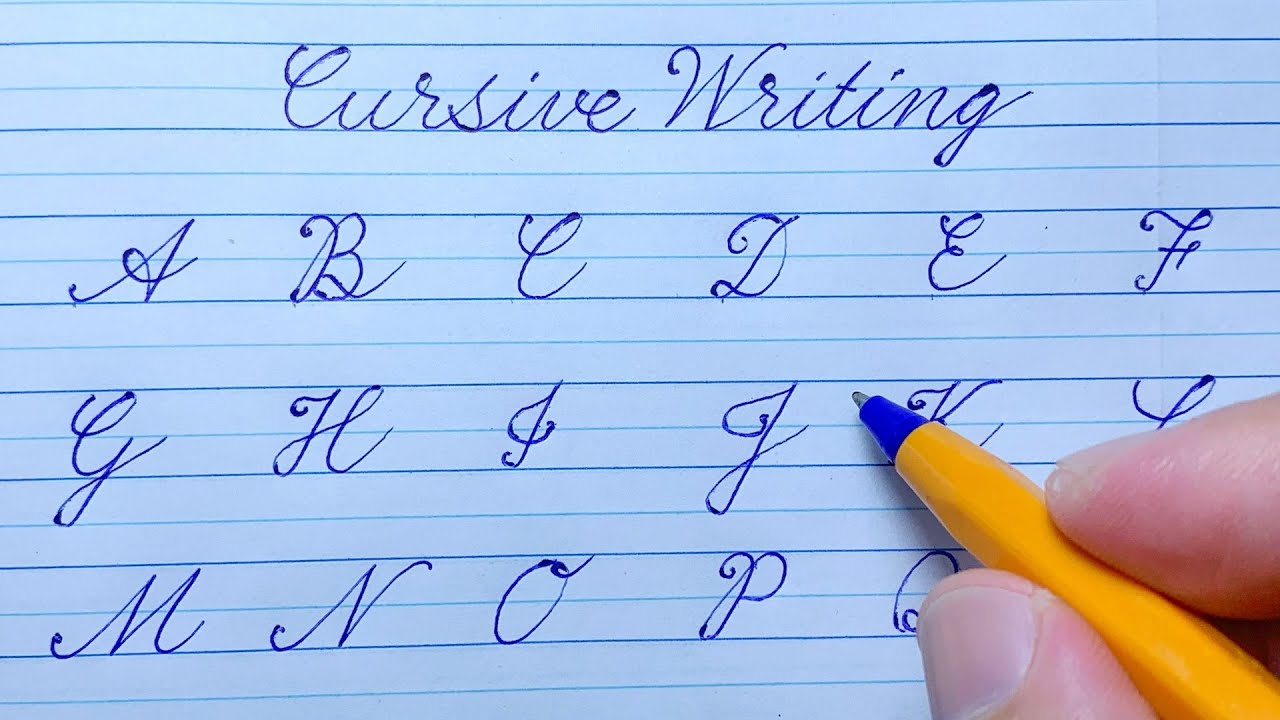 Cursive Writing
A B C D E F
G H I J K L
M N O P Q